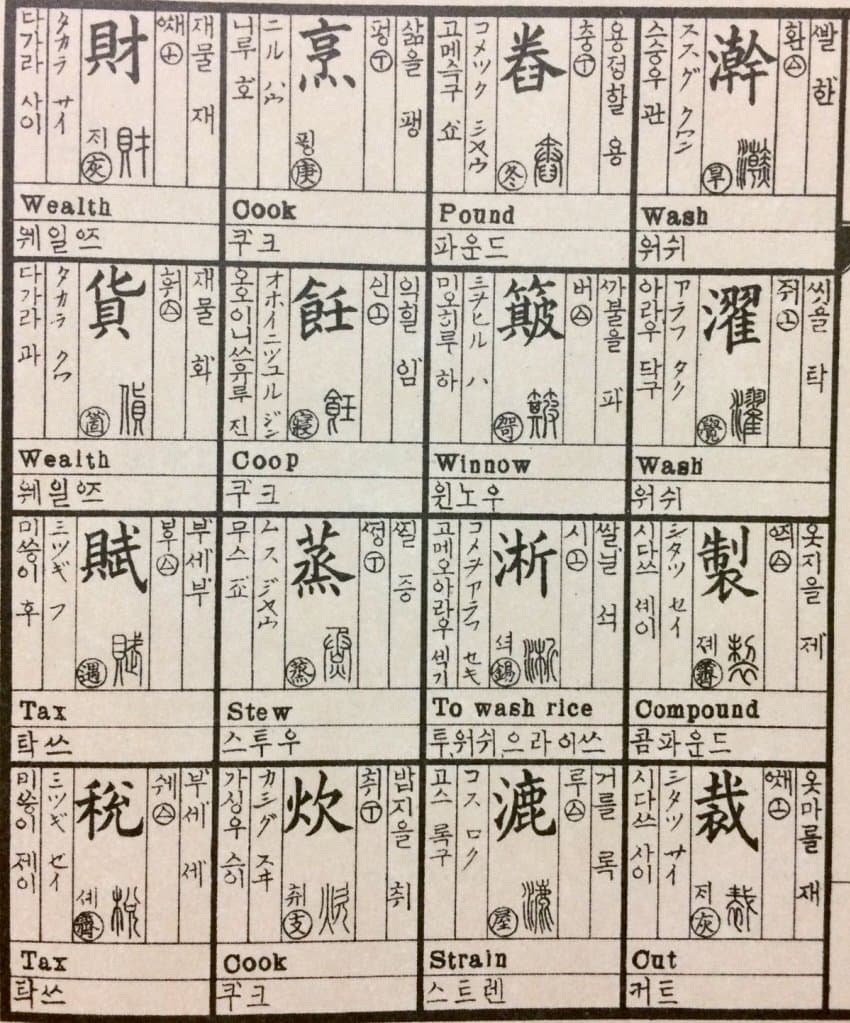 빨 한
환 ㊤
澣
旱
ススグ クワン
스승우 관
Wash
워쉬
씻을 탁
濯
覺
アラフ タク
아라우 닥구
Wash
워쉬
옷지을 제
製
졔 霽
シタツ セイ
시다쓰 셰이
Compound
콤파운드
옷마를 재
裁
지 灰
シタツ サイ
시다쓰 사이
Cut
커트
용정할 용
충
舂
冬
コメツク ショウ
고메즉구 쇼
Pound
파운드
까불을 파
버
簸
箇
ミヲヒル ハ
미오히루 하
Winnow
윈노우
쌀닐 석
시
淅
셕 錫
コメヲアラフ セキ
고메오아라우 셕기
To wash rice
투,워쉬,으라이쓰
거를 록
루
漉
屋
コス ロク
고스 록구
Strain
스트렌
삶을 팽
펑
烹
핑 庚
ニル ハウ
니루 호
Cook
쿠크
익힐 임
신
飪
寢
オホイニツユル ジン
오오이니쓰유루 진
Coop
쿠크
찔 증
쪙
蒸
蒸
ムス ジヤウ
무스 죠
Stew
스투우
밥지을 취
취
炊
취 支
カシグ スヰ
가싱우 슈이
Cook
쿠크
재물 재
財
지 灰
タカラ サイ
다가라 사이
Wealth
웨일으즈
재물 화
훠
貨
箇
タカラ クワ
다가라 과
Wealth
웨일으즈
부세 부
賦
遇
ミツギ フ
미쑹이 후
Tax
탁쓰
부세 세
쉐
稅
셰 霽
ミツギ セイ
미쑹이 졔이
Tax
탁쓰